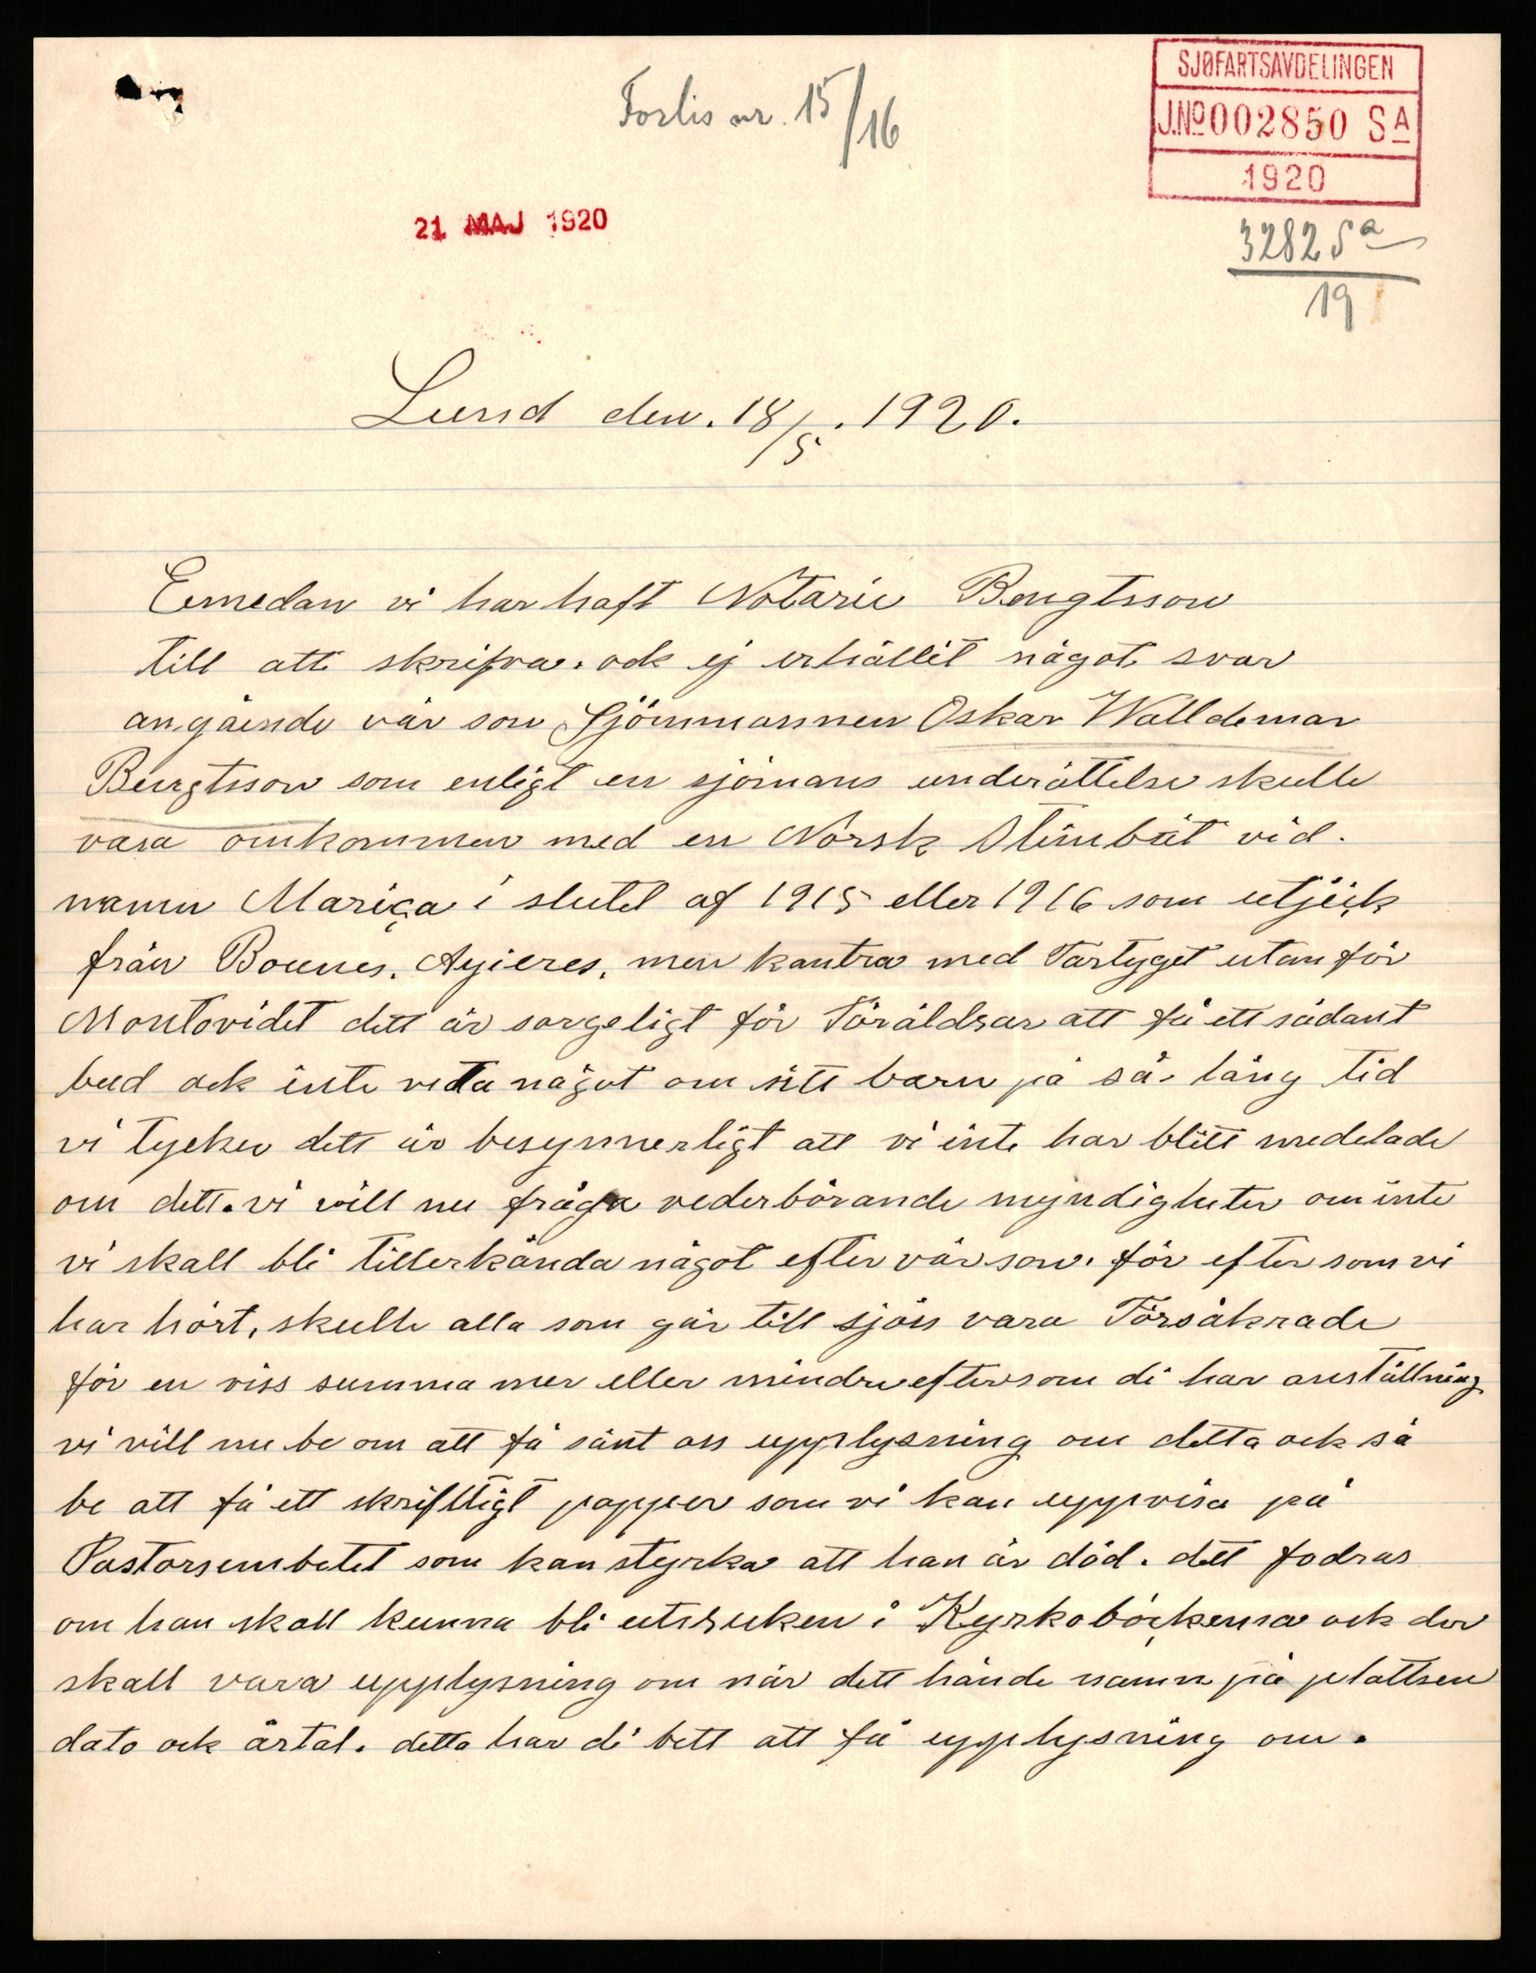 Forlis nr. 15/16
SJØFARTSAVDELINGEN
J.Nº 002850 SA
1920
3282 Sa
19
21 MAJ 1920
Lund den. 18/5. 1920.
Emedan vi har haft Notarie Bengtsson
till att skrifva. ock ej erhållit något svar
angående vår son Sjömmannen Oskar Walldemar
Bengtsson som enligt en sjömans underättelse skulle
vara omkommen med en Norsk Stimbåt vid.
namn Mariça i slutet af 1915 eller 1916 som utjick
från Bounes. Ayieres. men kantra med Fartyget utanför
Montovidet dett är sorgeligt för Föräldrar att få ett sådant
bud ock inte veta något om sitt barn på så. lång tid
vi tycker dett är besynnerligt att vi inte har blitt medelade
om dett. vi vill nu fråga vederbörande myndigheter om inte
vi skall bli tillerkända något efter vår son. för efter som vi
har hört, skulle alla som går till sjös vara Försäkrade
för en viss summa mer eller mindre eftersom di har anställning
vi vill nu be om att få sänt oss upplysning om detta ock så
be att få ett skriftligt papper som vi kan uppvisa på
Pastorsembetet som kan styrka att han är död. det fodras
om han skall kunna bli utstruken i Kyrkoböckerna ock der
skall vara upplysning om når dett hände namn på plattsen
dato ock årtal. detta har di bett att få upplysning om.